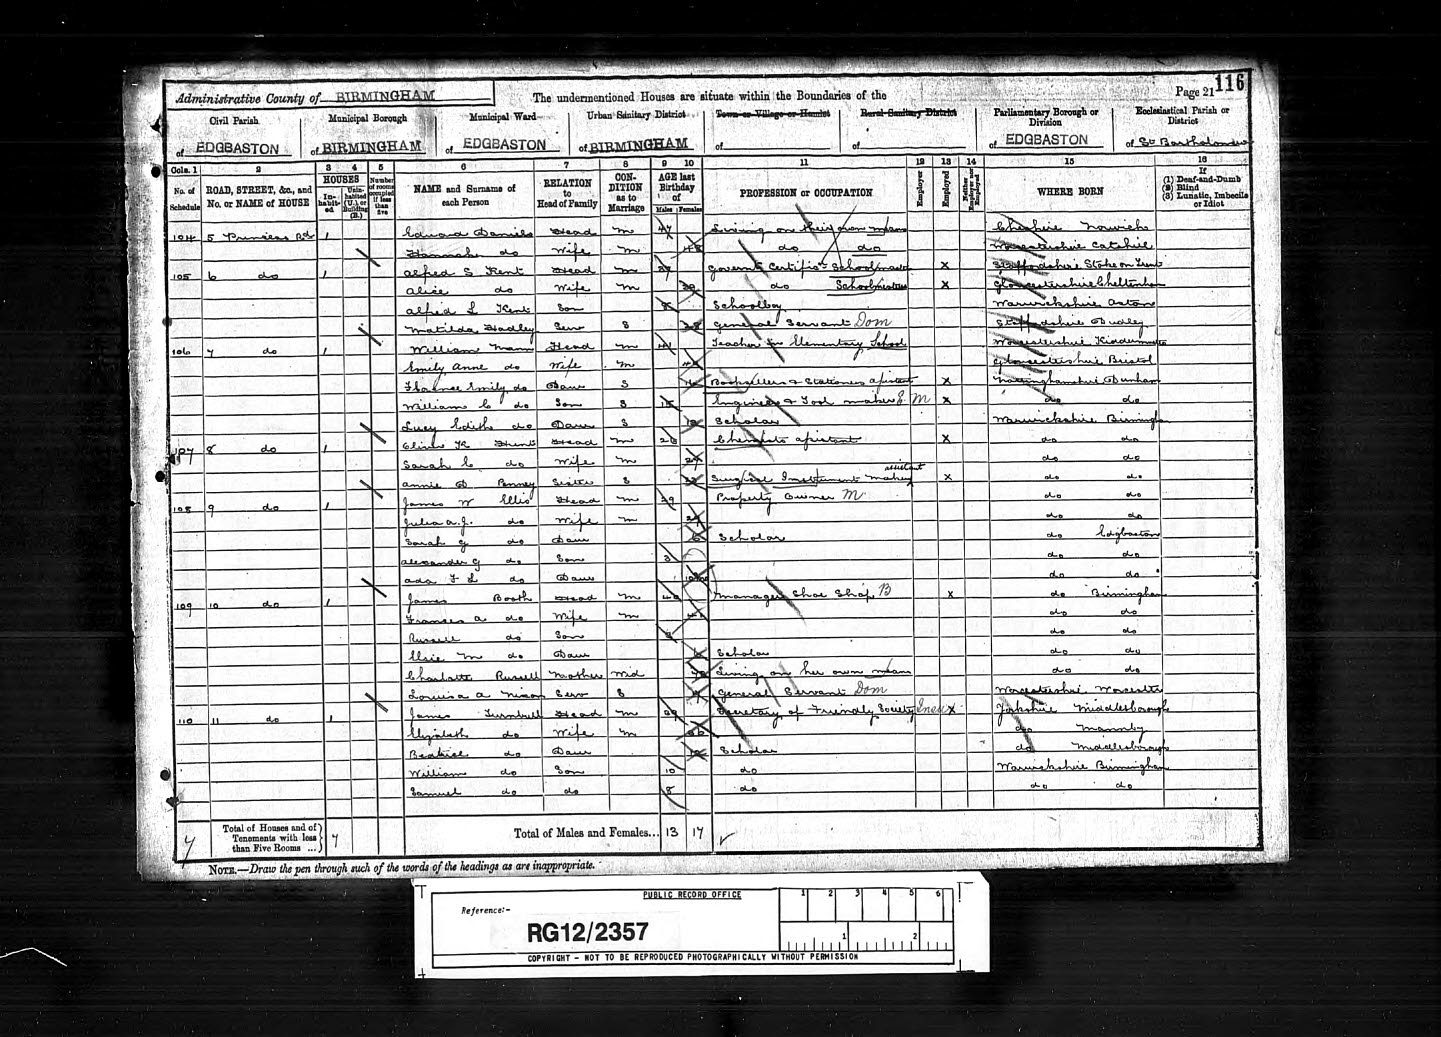 Administrative County of BIRMINGHAM
The undermentioned Houses are situate within the Boundaries of the
Page 21
116
Civil Parish
of EDGBASTON
Municipal Borough
of BIRMINGHAM
Municipal Ward
of EDGBASTON
Urban Sanitary District
of BIRMINGHAM
Town or Village or Hamlet
of
Rural Sanitary District
of
Parliamentary Borough or Division
of EDGBASTON
Ecclesiastical Parish or District
of St Bartholomew
Cols. 1 2 3 4 5 6 7 8 9 10 11 12 13 14 15 16
No. of Schedule
ROAD, STREET, &c., and No. or NAME of HOUSE
HOUSES
Inhabited
Uninhabited (U.) or Building (B.)
Number of rooms occupied if less than five
NAME and Surname of each Person
RELATION to Head of Family
CONDITION as to Marriage
AGE last Birthday of
Males Females
PROFESSION or OCCUPATION
Employer
Employed
Neither Employer nor Employed
WHERE BORN
If
(1) Deaf-and-Dumb
(2) Blind
(3) Lunatic, Imbecile or Idiot
104 5 Princess Rd 1 Edward Daniels Head M 47 Living on their own means Cheshire
Hannah do Wife M 48 do do Worcestershire Catshill
105 6 do 1 Alfred S Kent Head M 37 School master X Staffordshire Stoke on Trent
Alice do Wife M do School mistress X Gloucestershire Cheltenham
Alfred L Kent Son 8 Schoolboy Warwickshire Aston
Matilda Hadley Serv S General Servant Dom Staffordshire Dudley
106 7 do 1 William Mann Head M 41 Teacher Elementary School Worcestershire Kidderminster
Emily Anne do Wife M Gloucestershire Bristol
Florence Emily do Daur S Booksellers & Stationers assistant X Nottinghamshire Dunham
William C do Son S 15 Engineer & Tool maker E M X do do
Lucy Edith do Daur S 12 Scholar Warwickshire Birmingham
107 8 do 1 Head M 26 Chemists assistant X do do
Sarah C do Wife M 27 do do
Annie D Penney Sister S 22 Surgical Instrument making assistant X do do
108 9 do 1 James W Ellis Head M 29 Property Owner M do do
Julia A.J. do Wife M do do
Sarah G do Daur 6 Scholar do Edgbaston
Alexander G do Son 3 do do
Ada F L do Daur do do
109 10 do 1 James Booth Head M Manager Shoe Shop B X do Birmingham
Frances A do Wife M do do
Russell do Son do do
Elsie M do Daur Scholar do do
Charlotte Russell Mother Wid Living on her own means do do
Louisa A Nixon Serv S General Servant Dom Worcestershire Worcester
110 11 do 1 James Turnbull Head M 39 Secretary of Friendly Society X Yorkshire Middlesborough
Elizabeth do Wife M 36 do
Beatrice do Daur 12 Scholar do Middlesborough
William do Son 10 do Warwickshire Birmingham
Samuel do do 8 do do do
7
Total of Houses and of Tenements with less than Five Rooms ...
7
Total of Males and Females... 13 17
NOTE.—Draw the pen through such of the words of the headings as are inappropriate.
PUBLIC RECORD OFFICE
1 2 3 4 5 6
Reference:-
RG12/2357
1 2
COPYRIGHT - NOT TO BE REPRODUCED PHOTOGRAPHICALLY WITHOUT PERMISSION